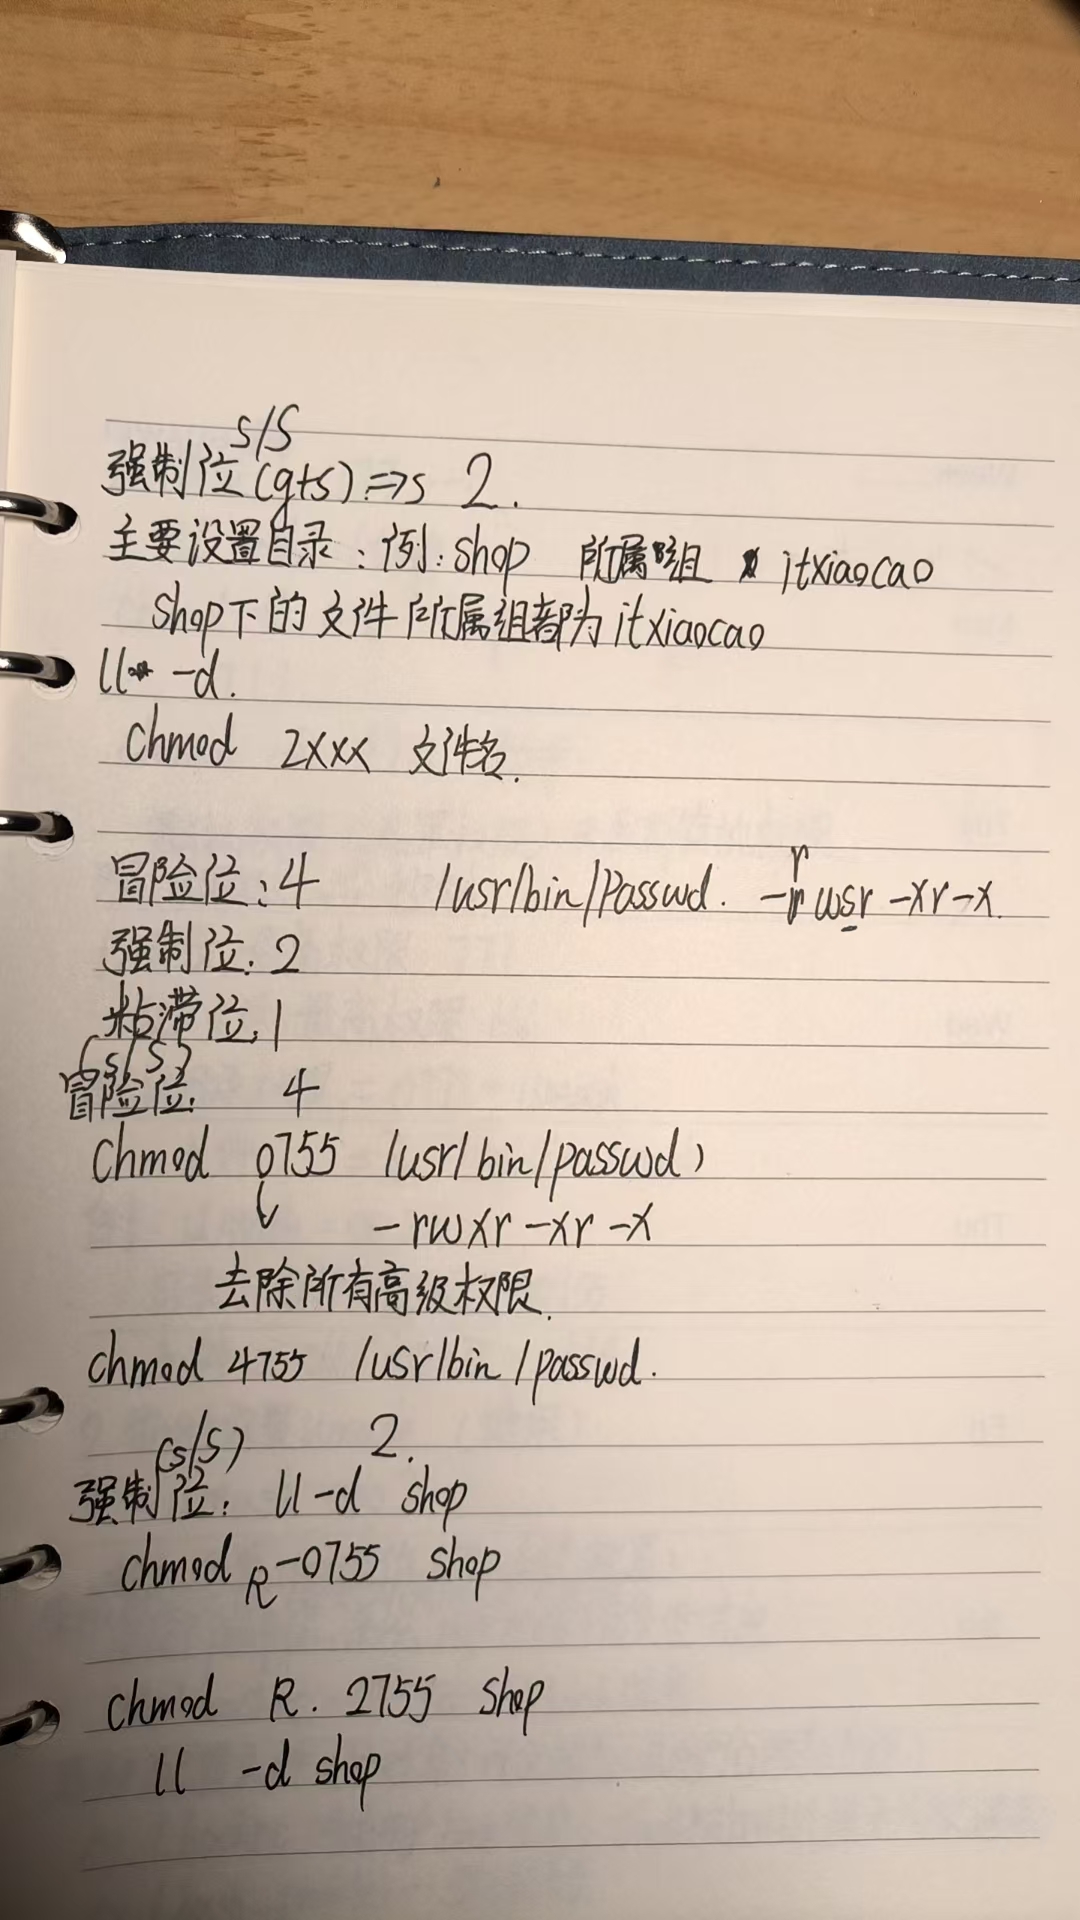 s/S
强制位(g+s)=>s 2.
主要设置目录:例:shop 所属组 itxiaocao
shop下的文件所属组都为itxiaocao
ll -d.
chmod 2xxx 文件名.
冒险位:4 /usr/bin/passwd. -rwsr-xr-x.
强制位:2
粘滞位:1
(s/S)
冒险位: 4
chmod 0755 /usr/bin/passwd)
-rwxr-xr-x
去除所有高级权限.
chmod 4755 /usr/bin/passwd.
(s/S) 2.
强制位: ll -d shop
chmod R-0755 shop
chmod R. 2755 shop
ll -d shop